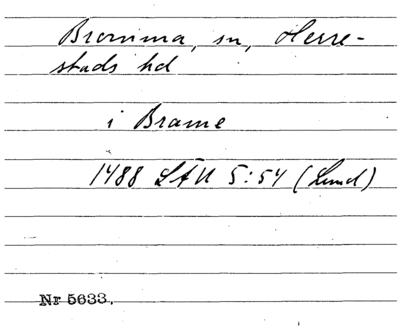 Bromma, sn, Herre-
stads hd
i Brame
1488 LÄU 5:54 (Lund)
Nr 5633.